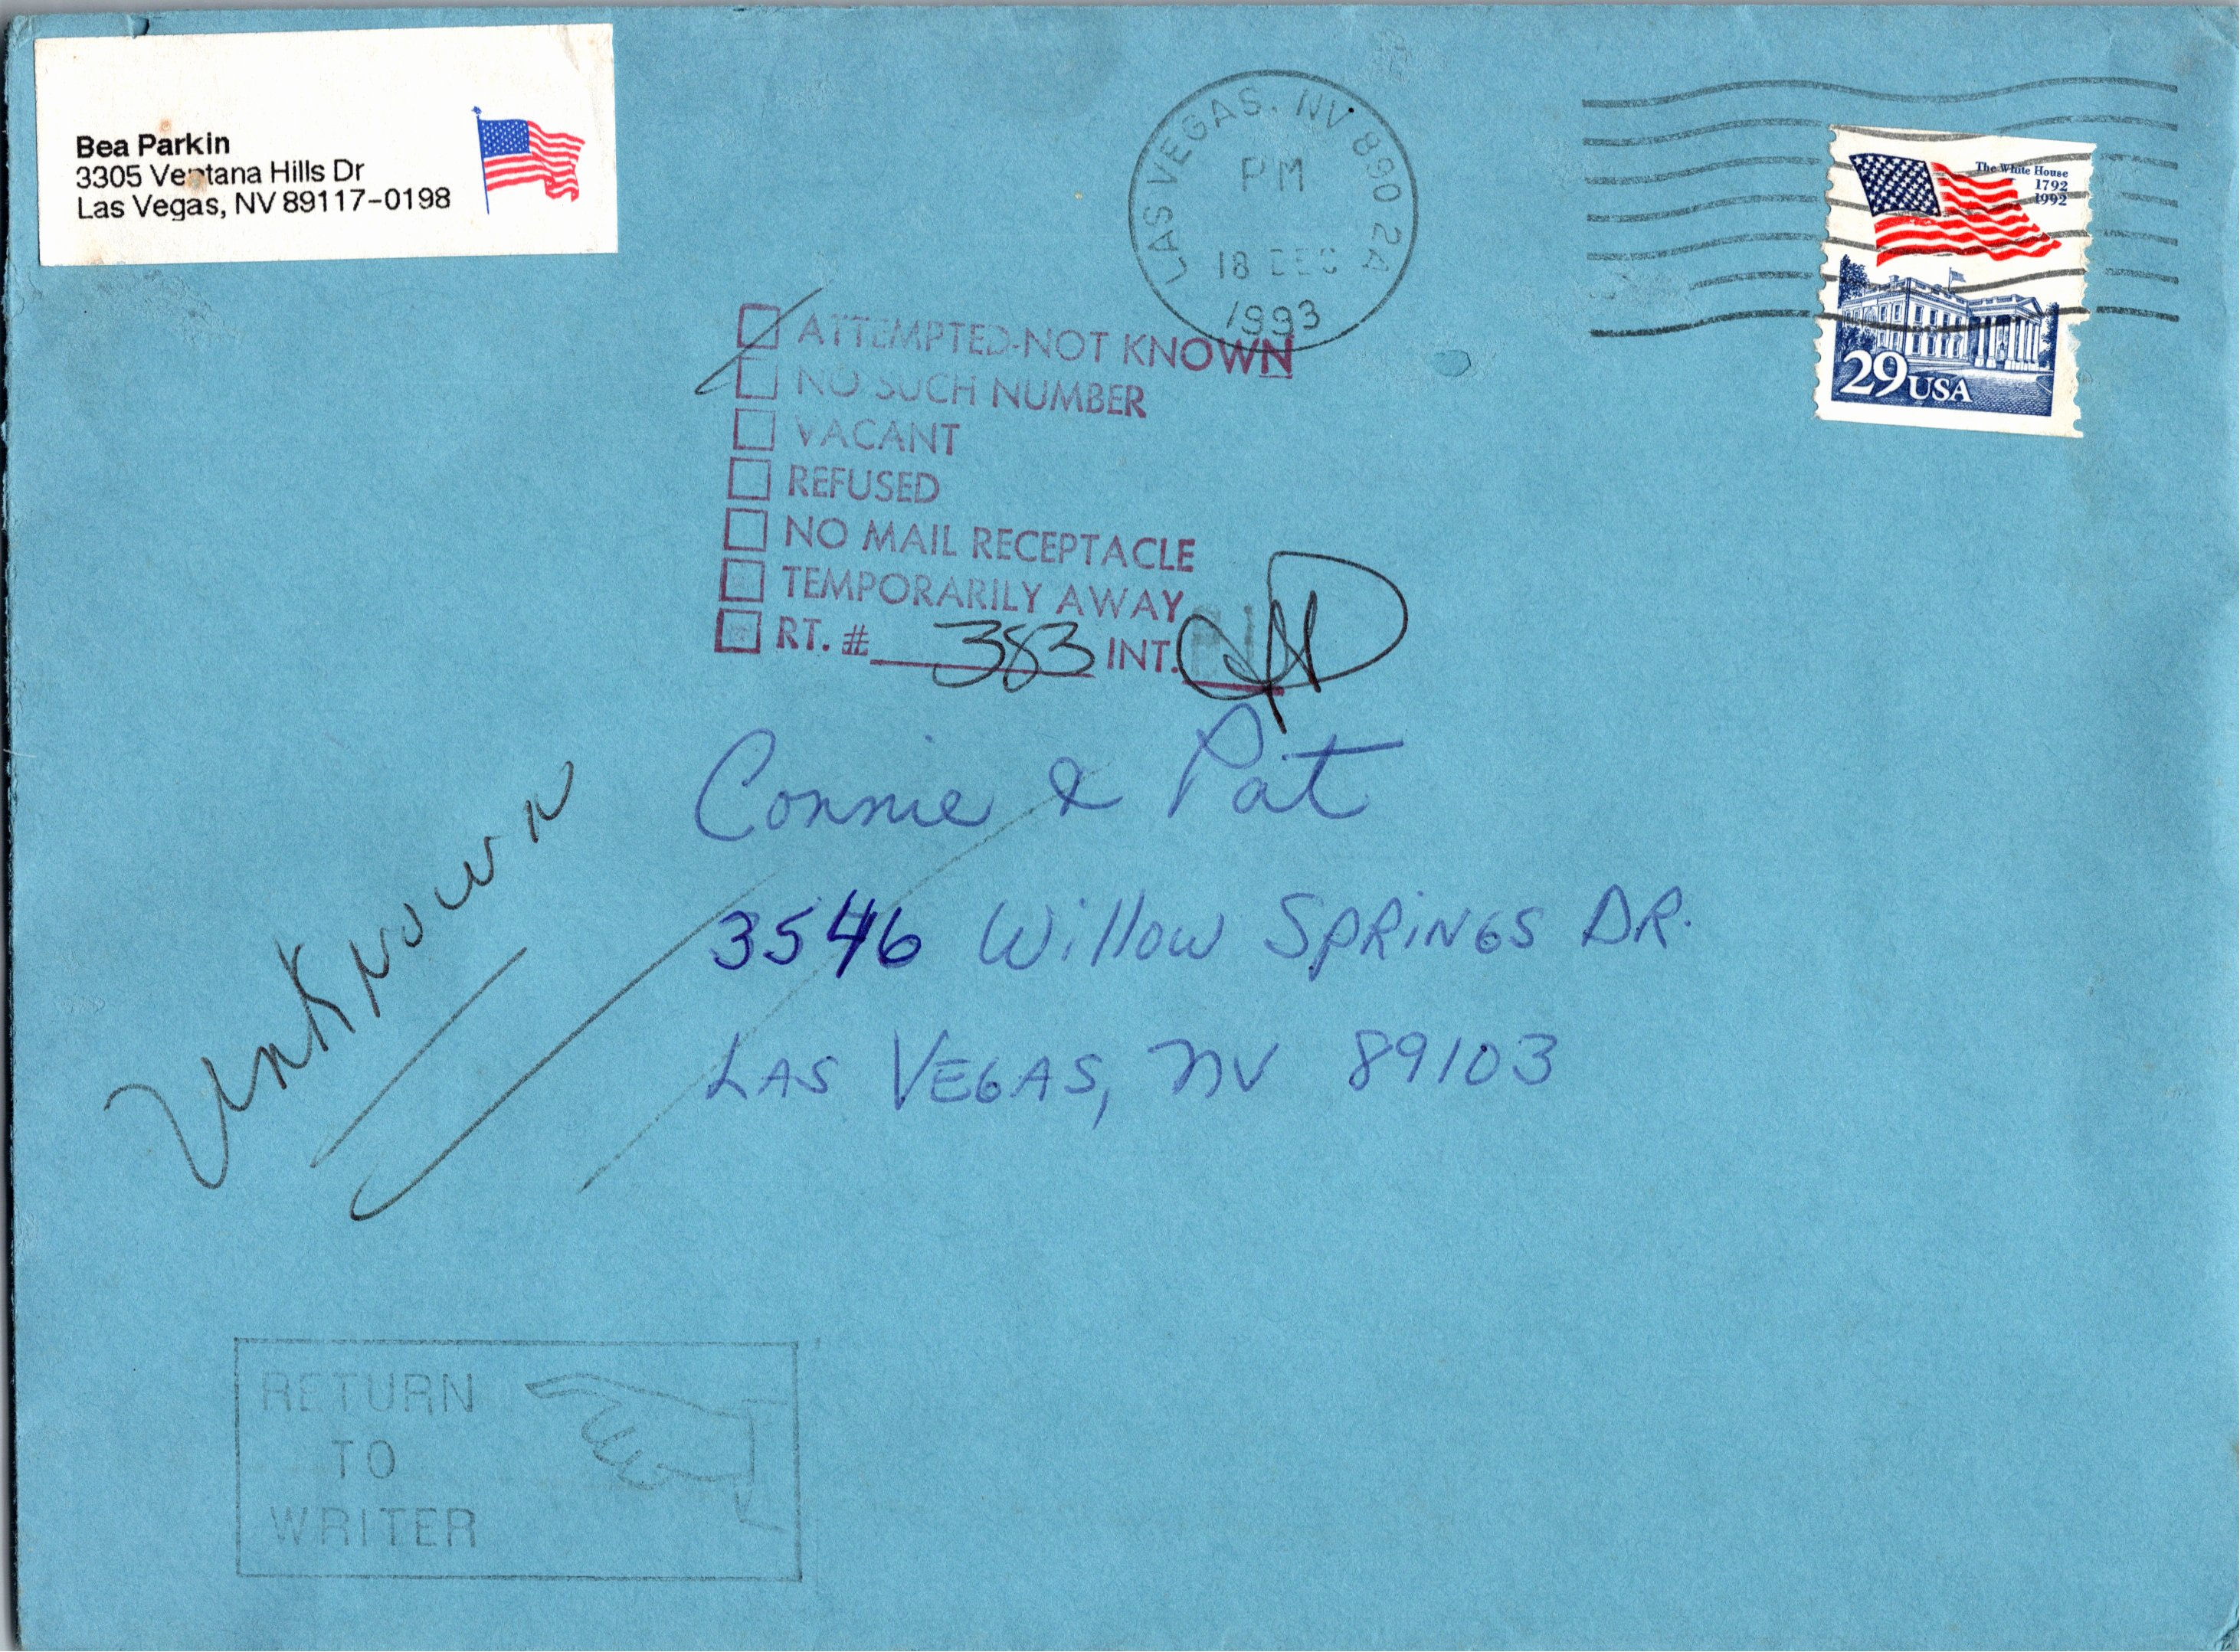 Bea Parkin
3305 Ventana Hills Dr
Las Vegas, NV 89117-0198
LAS VEGAS, NV 890 2A
PM
18 DEC
1993
The White House
1792
1992
29 USA
ATTEMPTED-NOT KNOWN
NO SUCH NUMBER
VACANT
REFUSED
NO MAIL RECEPTACLE
TEMPORARILY AWAY
RT. # 383 INT.
Connie & Pat
3546 Willow SPRiNGS DR.
LAS VEGAS, NV 89103
UNKNOWN
RETURN
TO
WRITER